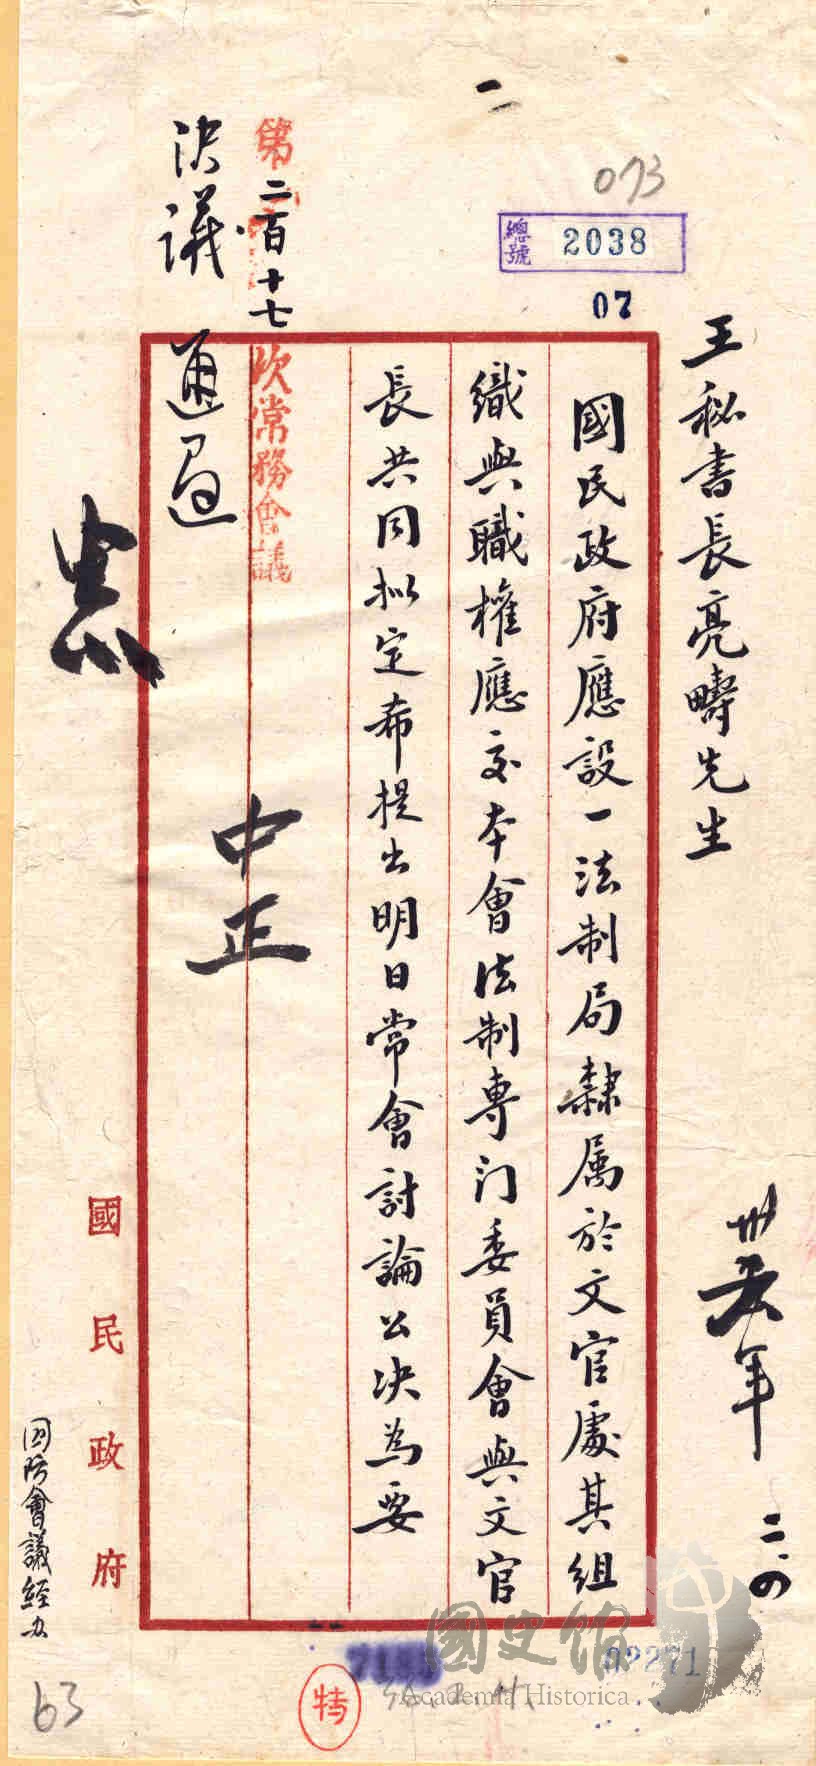 二
073
總號 2038
07
王秘書長亮疇先生
國民政府應設一法制局隸属於文官處其組
織與職權應交本會法制專门委員會與文官
長共同拟定希提出明日常會討論公决為要
中正
卅五年
二.四
第二百十七次常務會議
决議 通過
國民政府
国防會議經办
63
特
02271
國史館
Academia Historica